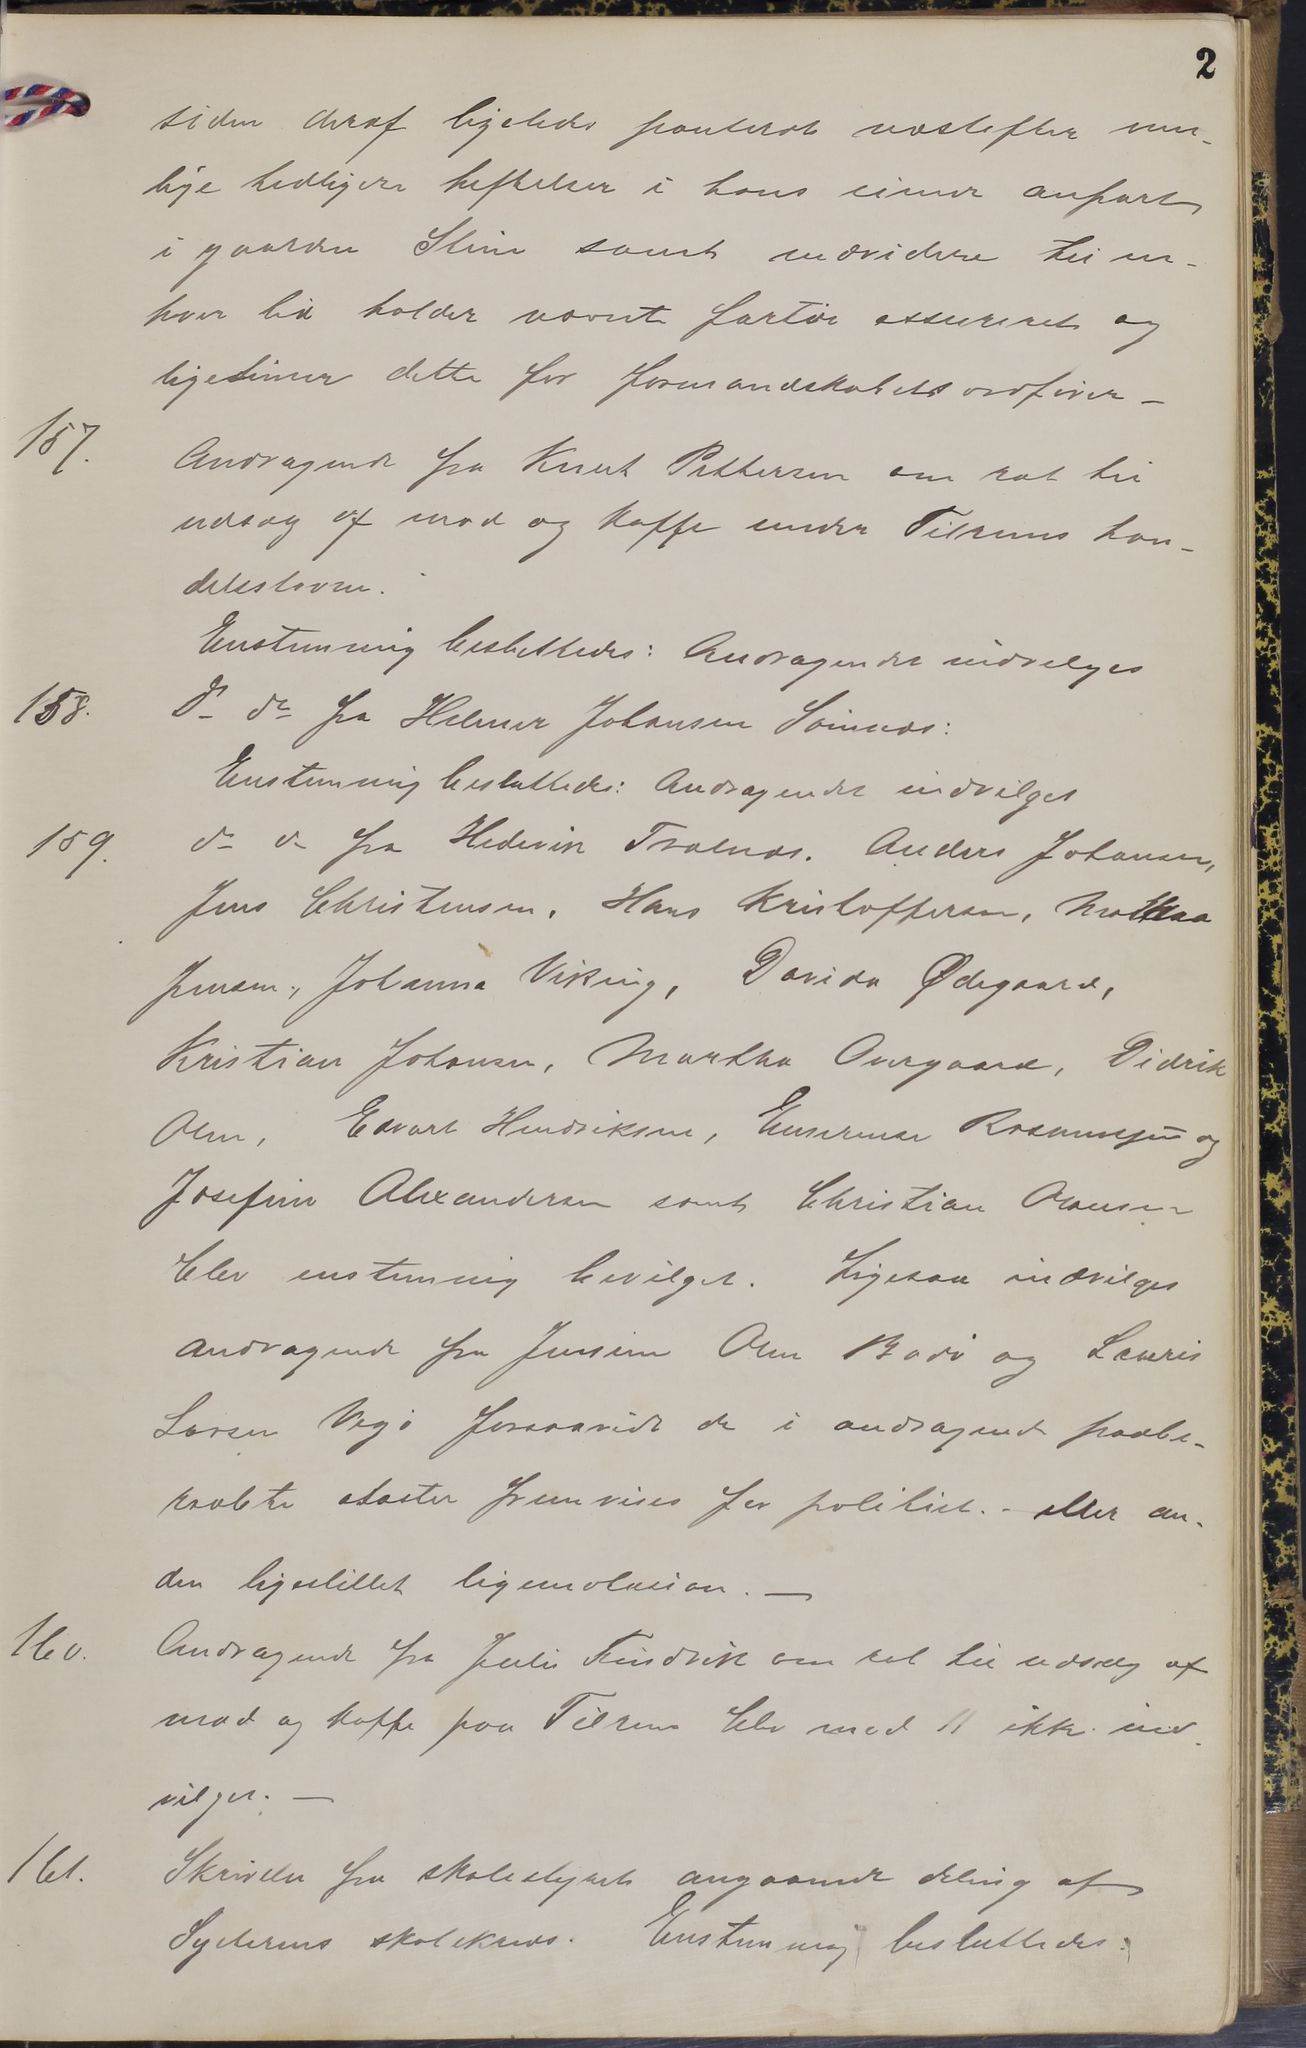 2
siden deraf ligeledes panteret næstefter mu-
lige tidligere heftelser i hans eiende anpart
i gaarden Stene samt endvidere til en-
hver tid holder nævnte fartøi assureret og
dette for formandskabets ordfører —
157.
Andragende fra Knut Pettersen om ret til
udsalg af mad og kaffe under Tilrems han-
delsstevne.
Enstemmig besluttedes: Andragendet indvilges
158.
do do fra Helmer Johansen Sömnæs:
Enstemmig besluttedes: Andragendet indvilget
159.
do do fra Hedevik Trælnæs. Anders Johansen,
Jens Christensen, Hans Kristoffersen,
Jensen, Johanna Viking, Davida Ødegaard,
Kristian Johansen, Martha Overgaard, Didrik
Olsen, Edvart Hendriksen, Rasmussen og
Josefine Alexandersen samt Christian Olausen
blev enstemmig bevilget. Ligesaa indvilges
andragende fra Jensine Olsen Bodø og Lauris
Larsen Vegø forsaavidt de i andragende paabe-
raabte atester fremvises for politiet. - eller an-
den ligestillet ligemolasion. —
160.
Andragende fra Julie Tindvik om ret til udsalg af
mad og kaffe paa Tilrem blev mod 11 ikke ind-
vilget. —
161.
Skrivelse fra skolestyret angaaende deling af
Sylterens skolekreds. Enstemmig besluttedes: